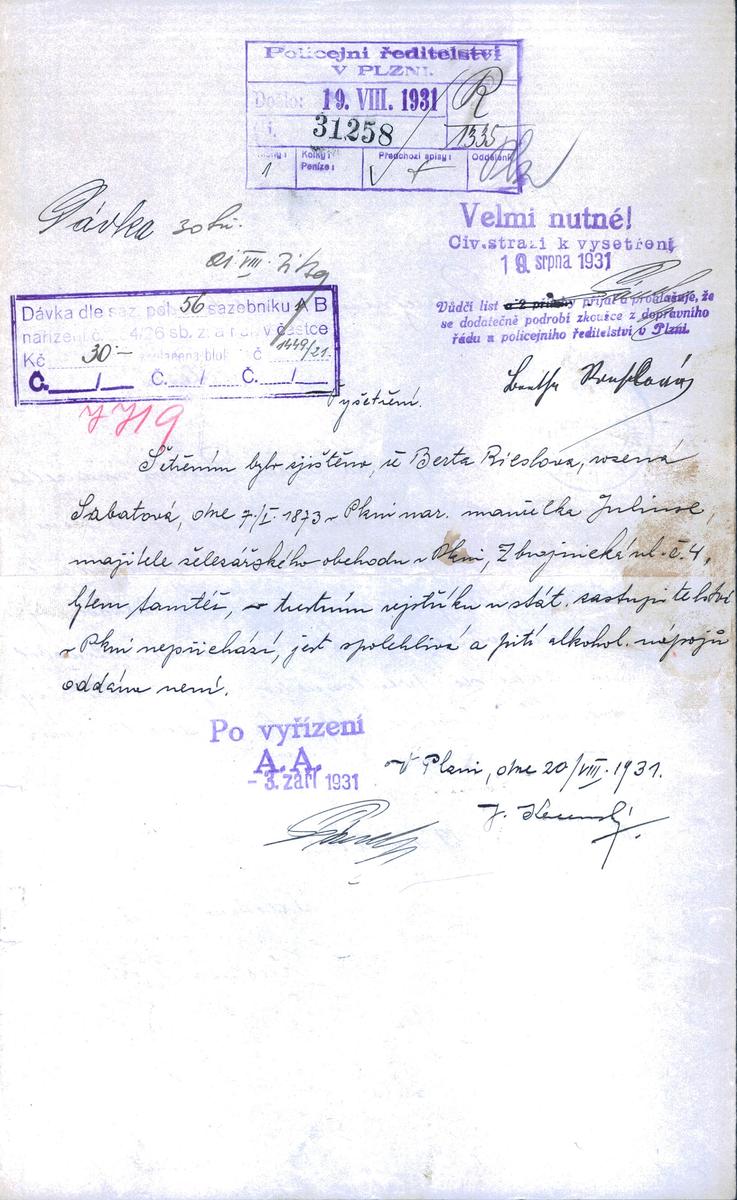 Policejní ředitelství
V PLZNI.
Došlo: 19. VIII. 1931 R
Čj. 31258 1335
Kolky: Předchozí spisy: Oddělení
1 Peníze:
Dávka 30 kč.
21. VIII. 31
Velmi nutné!
Civ. stráži k vyšetření
19. srpna 1931
Vůdčí list a 2 přílohy přijal a prohlašuje, že
se dodatečně podrobí zkoušce z dopravního
řádu a policejního ředitelství v Plzni.
Dávka dle saz. pol. 56 sazebníku A B
nařízení č. /26 sb. z. a n. v částce
Kč 30- č 1449/21.
Č. / Č. / Č. /
7719
Vyšetření.
Šetřením bylo zjištěno, že Berta Rieslova, rozená
Sabatová, dne 7./I. 1873 v Plzni nar. manželka Juliuse,
majitele železářského obchodu v Plzni, Zbrojnická ul. č. 4,
bytem tamtéž, v trestním rejstříku u stát. zastupitelství
v Plzni nepřichází, jest spolehlivá a pití alkohol. nápojů
oddána není.
Po vyřízení
A. A.
- 3. září 1931
V Plzni, dne 20/VIII. 1931.